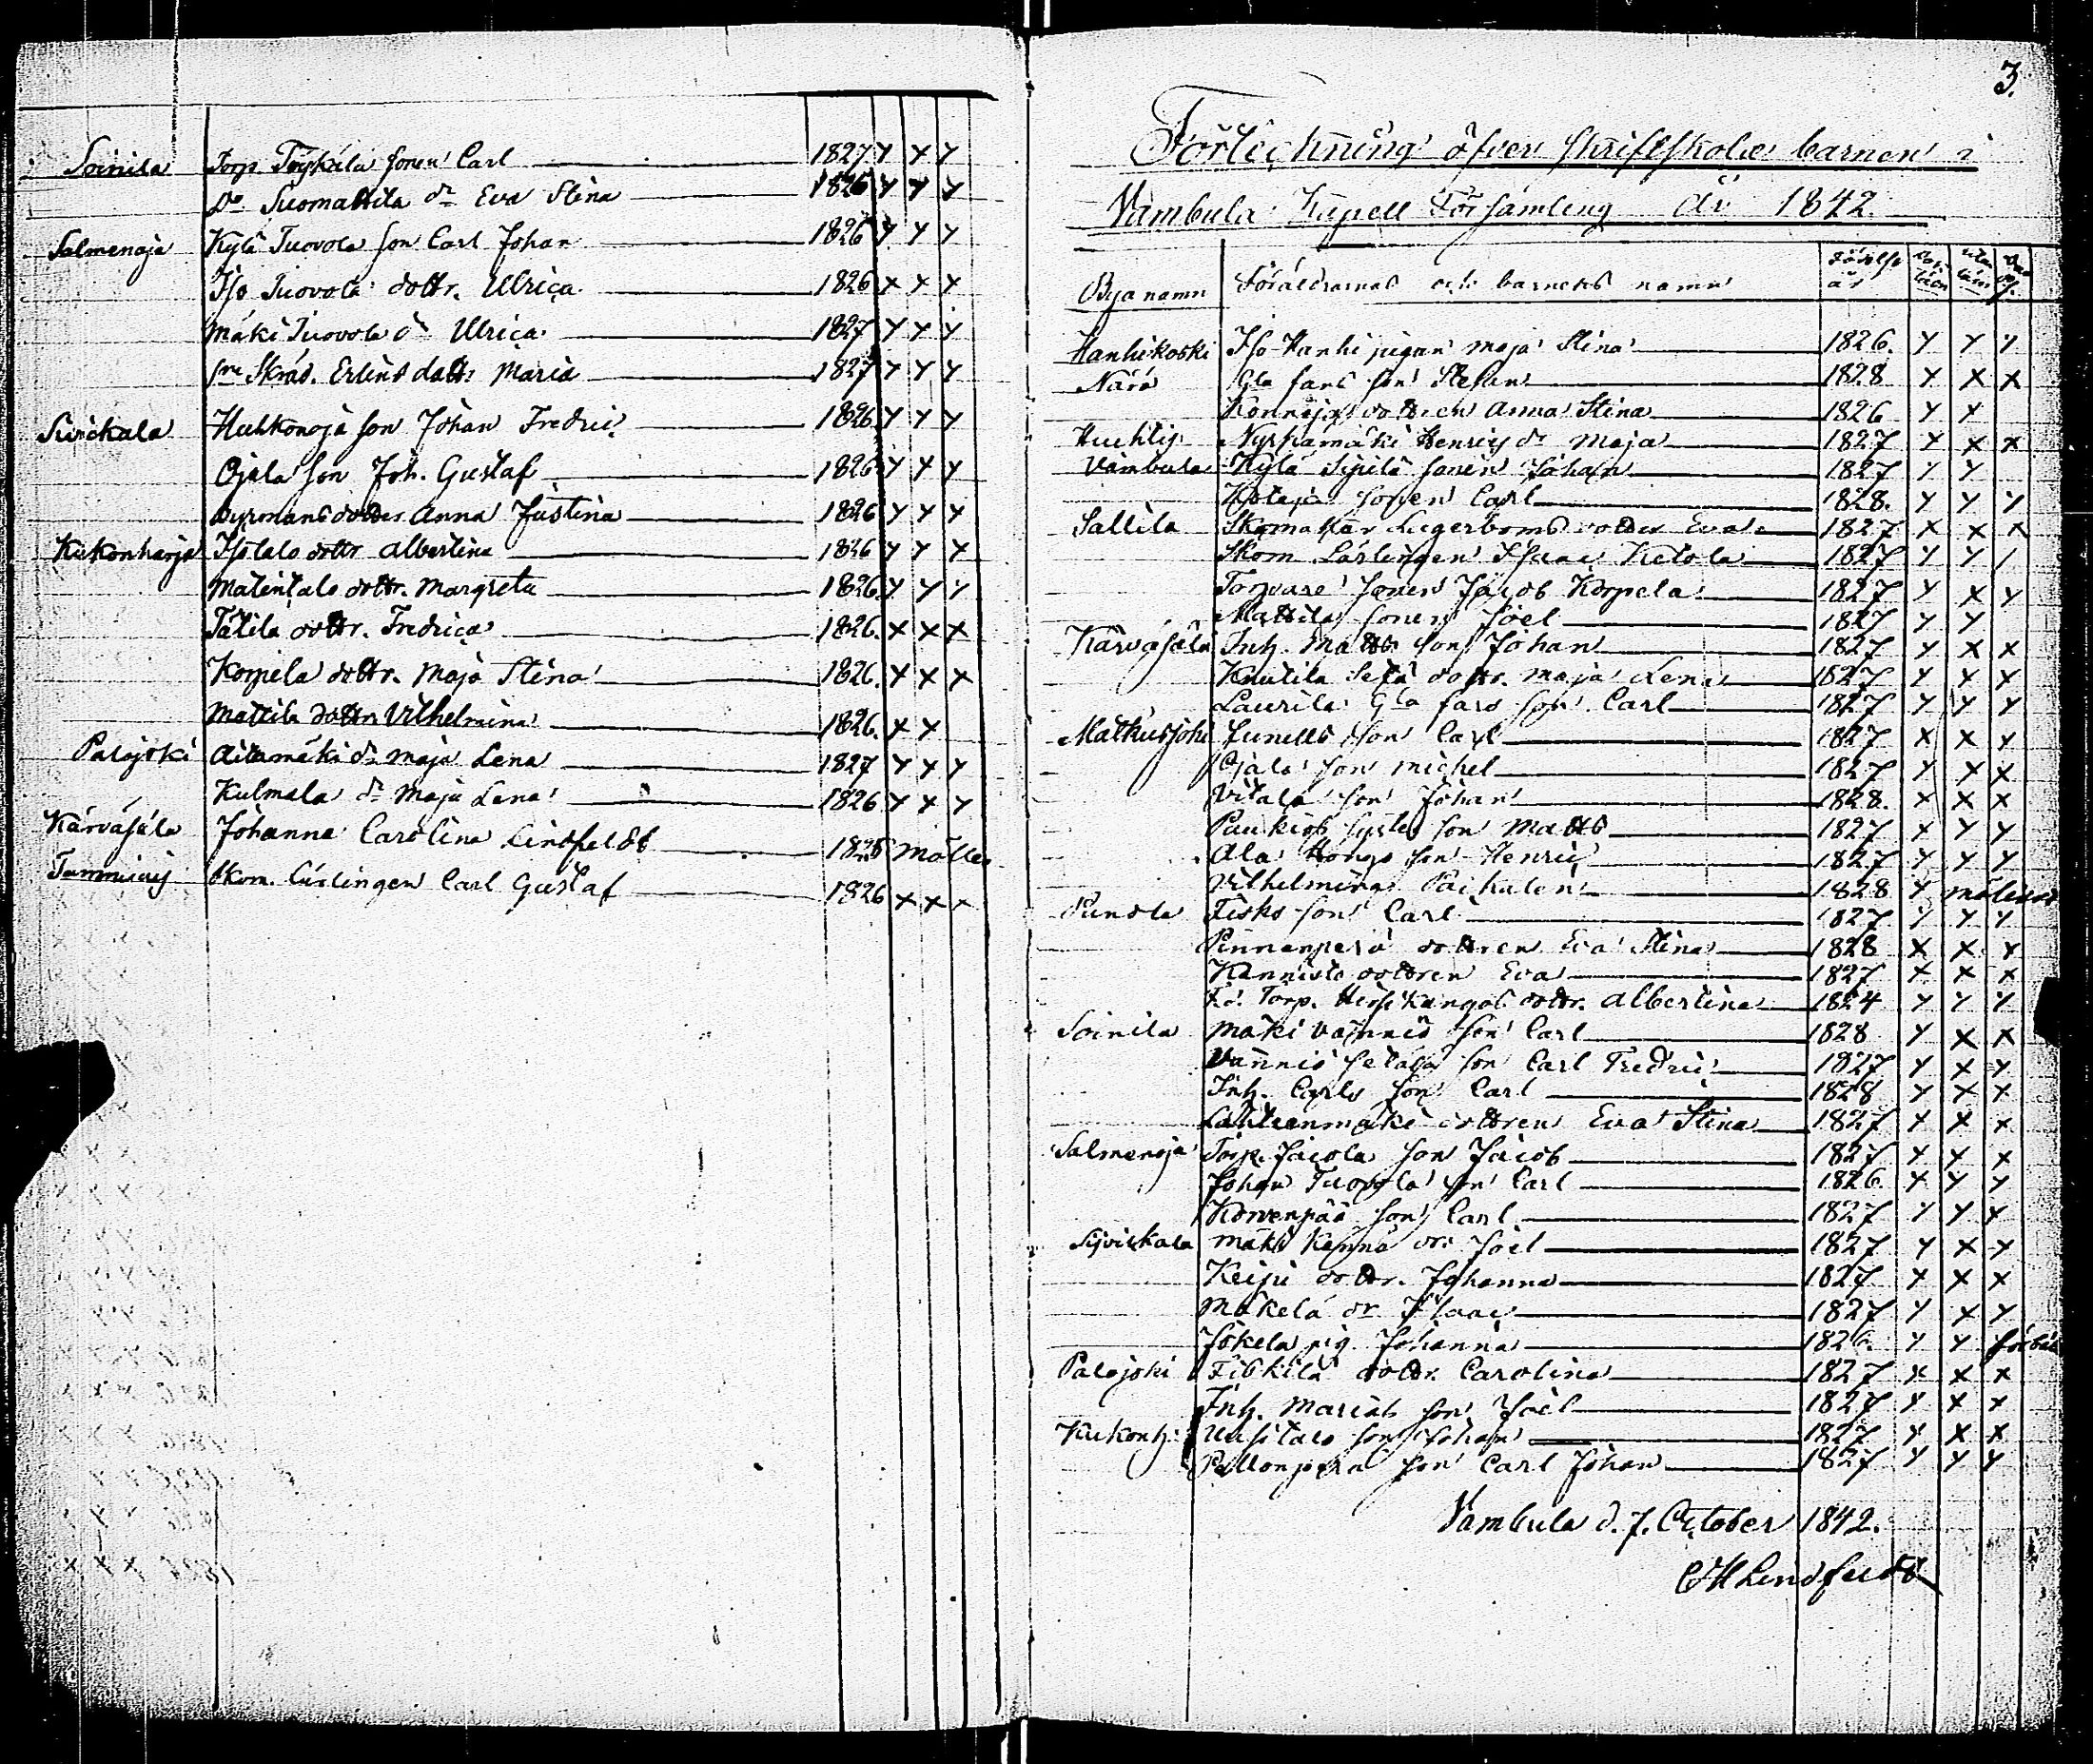 Soinila Torp. Töykälä sonen Carl 1827 x x x
Do Suomattila dr Eva Stina 1826 x x x
Salmenoja Kylä Tuovola son Carl Johan 1826 x x x
Iso Tuovola dottr. Ulrica 1826 x x x
Mäki Tuovola dr Ulrica 1827 x x x
Skräd. Erlins dottr Maria 1827 x x x
Huhkonoja son Johan Fredric 1826 x x x
Ojala son Joh. Gustaf 1826 x x x
dotter Anna Justina 1826 x x x
Kukonharja Isotalo dottr Albertina 1826 x x x
Matintalo dottr. Margreta 1826 x x x
Tätilä dottr. Fredrica 1826. x x x
Korpela dottr. Maja Stina 1826. x x x
Mattila dottr Vilhelmina 1826. x x
Palojoki Aitamäki dr Maja Lena 1827 x x x
Kulmala dr Maja Lena 1826 x x x
Kärväsälä Johanna Carolina Lindfeldt 1825
Skom. Lärlingen Carl Gustaf 1826 x x x
3.
Förtechning öfver skriftskole barnen i
Vambula Kapell Församling år 1842.
Byanamn Föräldrarnas och barnets namn födelse år
Hanhikoski Iso-Hanhi pigan Maja Stina 1826. x x x
Närä Gla fars son Stefan 1828 x x x
Konnoja dottren Anna Stina 1826 x x
Nyrhämäki Henrics dr Maja 1827 x x x
Vambula Kylä Sipilä sonen Johan 1827 x x
sonen Carl 1828. x x x
Sallila Skomakar Lagerboms dotter Eva 1827 x x x
Skom. Lärlingen Isaac Kietola 1827 x x /
Torpare sonen Jacob Korpela 1827 x x x
Mattila sonen Joel 1827 x x
Kärväsälä Inh. Matts son Johan 1827 x x x
Knutila Seta dottr. Maja Lena 1827 x x x
Laurila Gla fars son Carl 1827 x x x
Matkusjoki Junells son Carl 1827 x x x
Ojala son Michel 1827 x x x
Vitala son Johan 1828. x x x
son Matts 1827 x x x
Ala Hongo son Henric 1827 x x x
Vilhelmina 1828 x
Punola Fisks son Carl 1827 x x x
Pinnanperä dottren Eva Stina 1828 x x x
Kannisto dottren Eva 1827 x x x
Torp. dottr. Albertina 1824 x x x
Soinila Mäki Vännis son Carl 1828 x x x
Vännis son Carl Fredric 1827 x x x
Inh. Carls son Carl 1828 x x x
Lähteenmäki dottren Eva Stina 1827 x x x
Salmenoja Torp. Jacola son Jacob 1827 x x x
Johan Tuovola son Carl 1826 x x x
Korvenpää son Carl 1827 x x x
Mäki dr Joel 1827 x x x
Keipi dottr. Johanna 1827 x x x
Mäkelä dr Isaac 1827 x x x
Jokela pig. Johanna 1826. x x
Palojoki dottr. Carolina 1827 x x x
Inh. Marias son Joel 1827 x x x
Kukonh: Uusitalo son Johan 1827 x x x
Pellonperä son Carl Johan 1827 x x x
Vambula d. 7. October 1842.
Lindfeldt